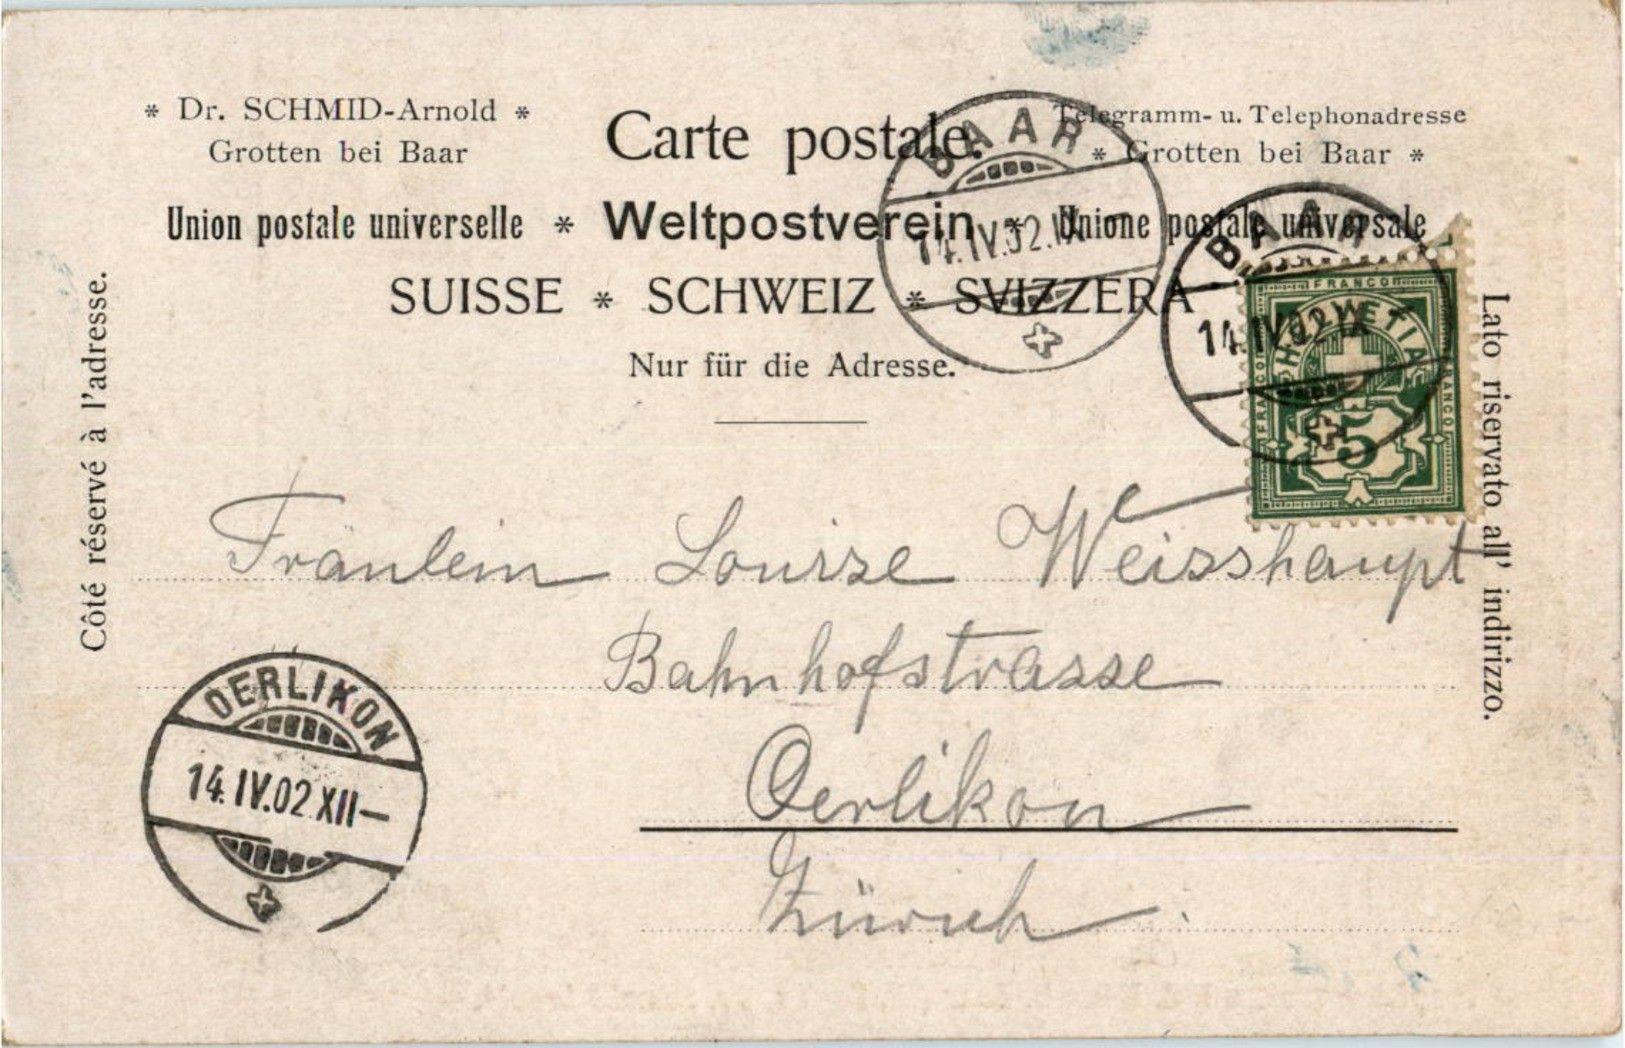 * Dr. SCHMID-Arnold *
Grotten bei Baar
Carte postale.
Telegramm- u. Telephonadresse
* Grotten bei Baar *
Union postale universelle * Weltpostverein * Unione postale universale
SUISSE * SCHWEIZ * SVIZZERA
Nur für die Adresse.
Côté réservé à l'adresse.
Lato riservato all' indirizzo.
BAAR
14.IV.02.IX-
BAAR
14.IV.02 IX
FRANCO
FRANCO
FRANCO
HELVETIA
5
Fräulein Louise Weisshaupt
Bahnhofstrasse
Oerlikon
Zürich.
OERLIKON
14.IV.02.XII-